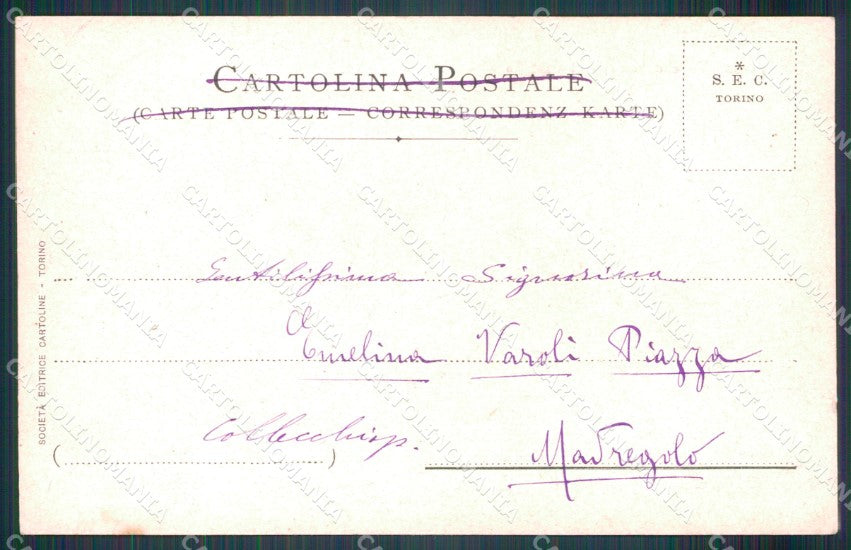 CARTOLINA POSTALE
(CARTE POSTALE — CORRESPONDENZ-KARTE)
*
S. E. C.
TORINO
SOCIETÀ EDITRICE CARTOLINE - TORINO
Gentilissima Signorina
Emelina Varoli Piazza
Madregolo
CARTOLINOMANIA